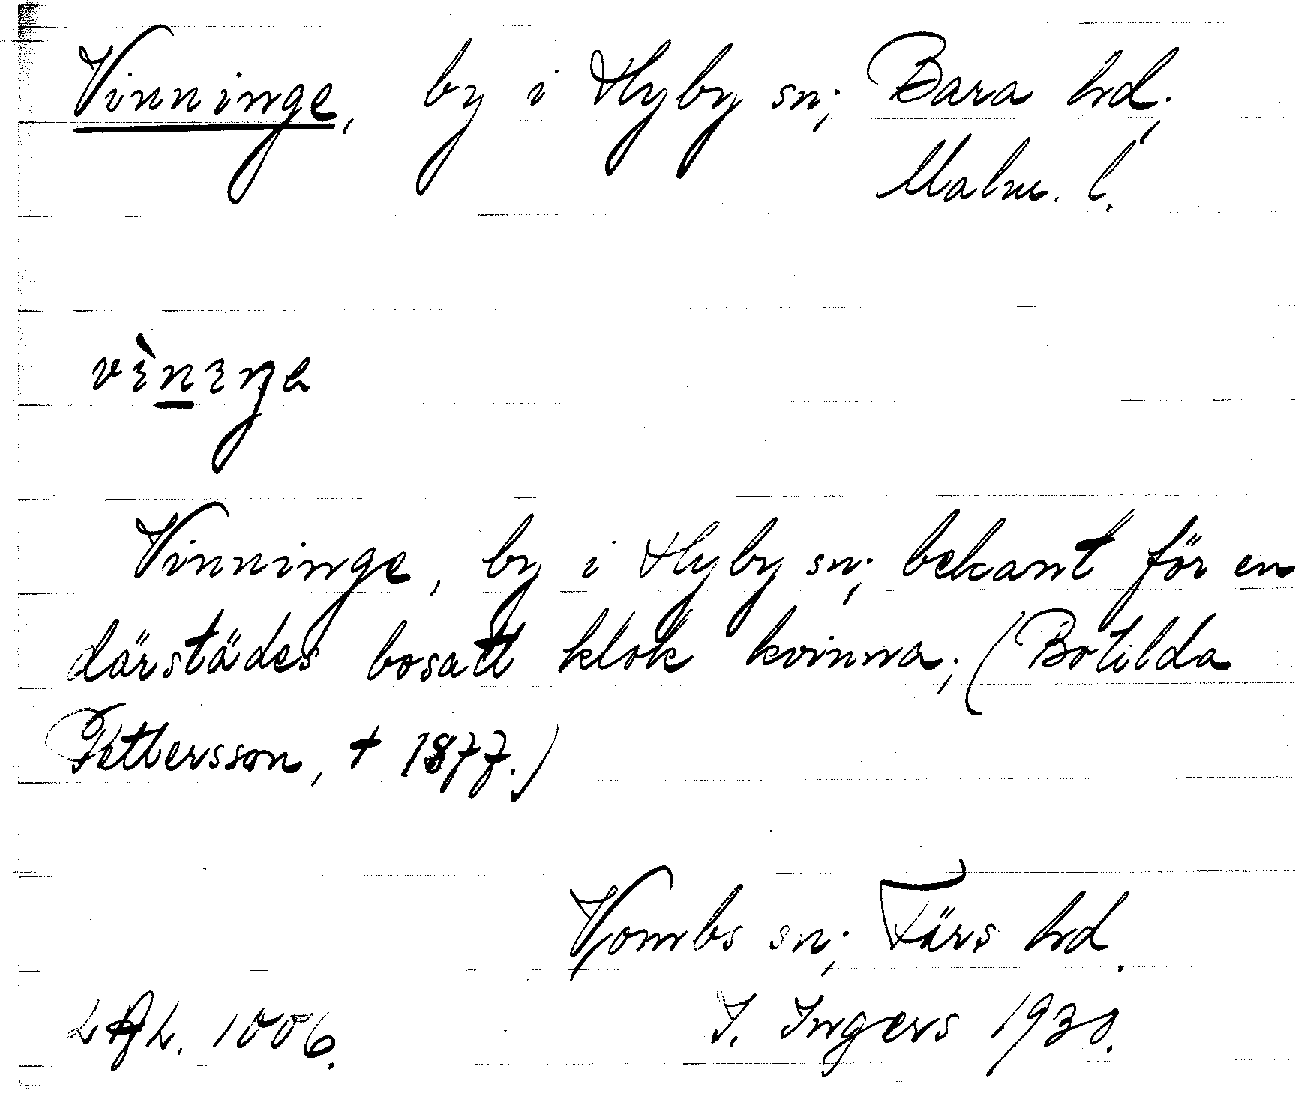 Vinninge, by i Hyby sn; Bara hd;
Malm. l.
vìnıŋa
Vinninge, by i Hyby sn; bekant för en
därstädes bosatt klok kvinna; (Botilda
Pettersson, † 1877.)
Vombs sn; Färs hd.
LAL. 1006.
I. Ingers 1930.